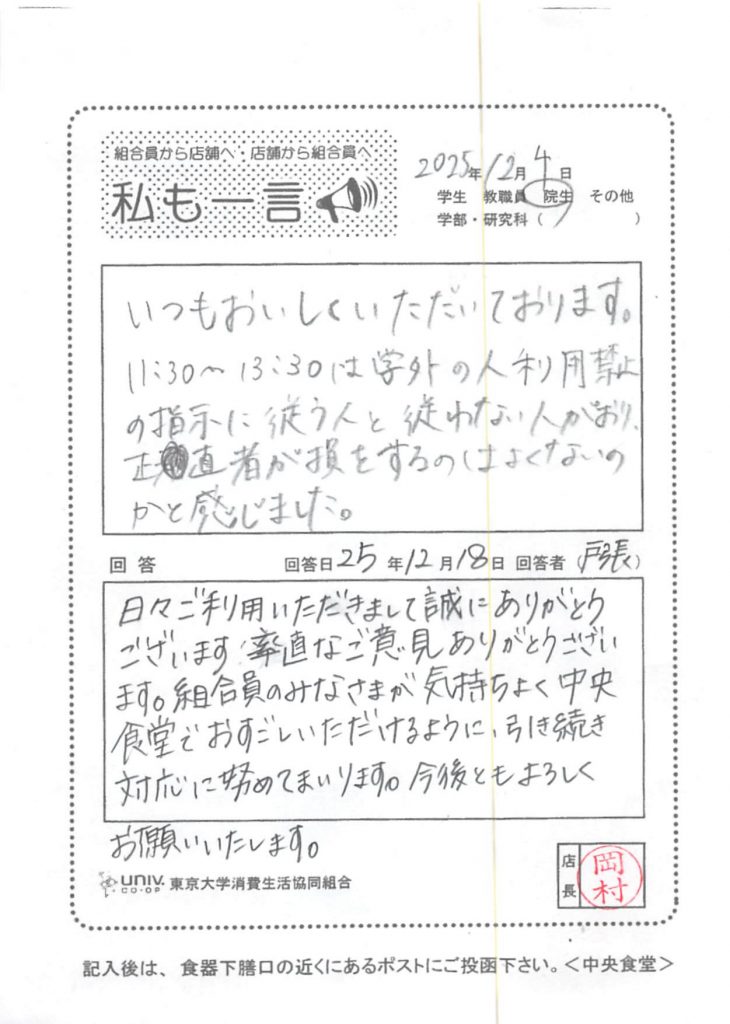 組合員から店舗へ・店舗から組合員へ
私も一言
2025年12月4日
学生 教職員 院生 その他
学部・研究科（ ）
いつもおいしくいただいております。
11:30〜13:30は学外の人利用禁止
の指示に従う人と従わない人がおり、
正直者が損をするのはよくないの
かと感じました。
回答 回答日25年12月18日 回答者（戸張）
日々ご利用いただきまして誠にありがとう
ございます。率直なご意見ありがとうござい
ます。組合員のみなさまが気持ちよく中央
食堂でおすごしいただけるように、引き続き
対応に努めてまいります。今後ともよろしく
お願いいたします。
UNIV. CO-OP 東京大学消費生活協同組合
店長 岡村
記入後は、食器下膳口の近くにあるポストにご投函下さい。＜中央食堂＞